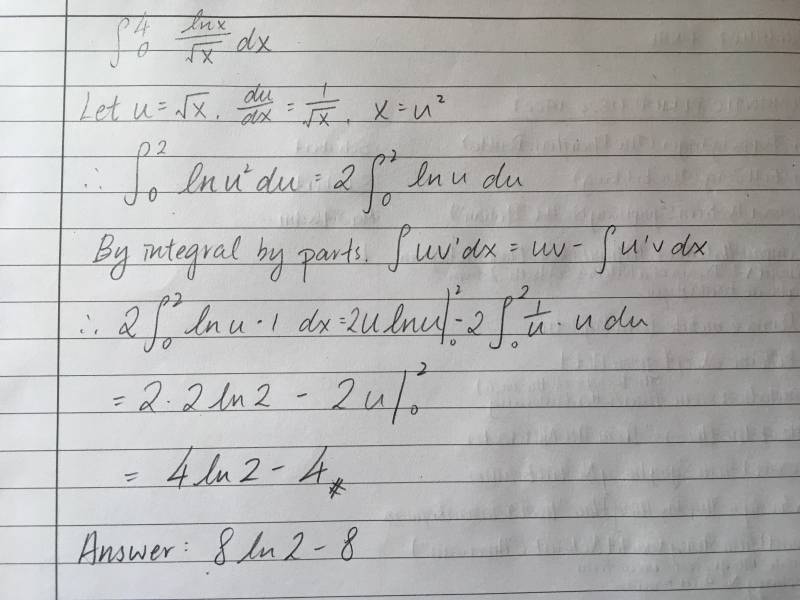 ∫₀⁴ lnx/√x dx
Let u = √x, du/dx = 1/√x, x = u²
∴ ∫₀² ln u² du = 2 ∫₀² ln u du
By integral by parts. ∫ uv' dx = uv - ∫ u'v dx
∴ 2 ∫₀² ln u · 1 dx = 2u ln u |₀² - 2 ∫₀² 1/u · u du
= 2 · 2 ln 2 - 2u |₀²
= 4 ln 2 - 4 #
Answer: 8 ln 2 - 8